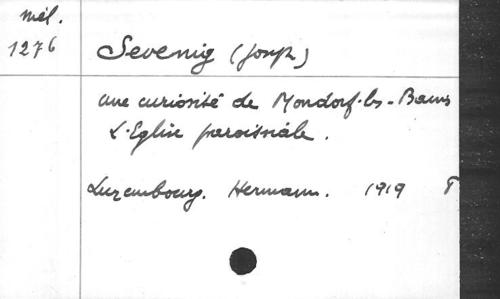 mél.
1276
Sevenig (Joseph)
une curiosité de Mondorf-les-Bains
L'Eglise paroissiale.
Luxembourg. Hermann. 1919 T